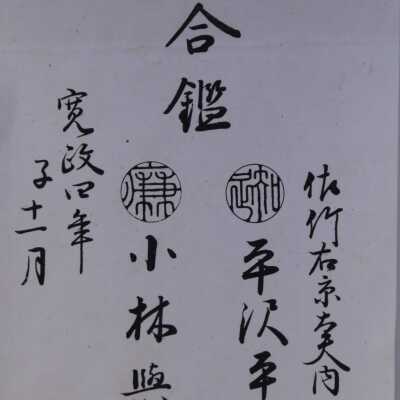 合鑑
佐竹右京大夫内
平沢平
小林與
寛政四年
子十一月